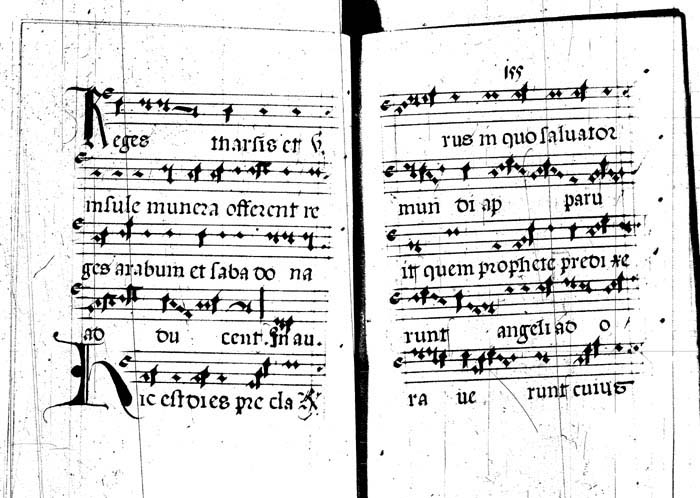 Reges tharsis et V.
insule munera offerent re
ges arabum et saba do na
ad du cent. In au.
Hic est dies pre cla
155
rus in quo saluator
mun di ap paru
it quem prophete predi xe
runt angeli ad o
ra ue runt cuius